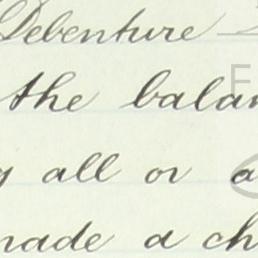 Debenture
the balan
y all or a
made a ch